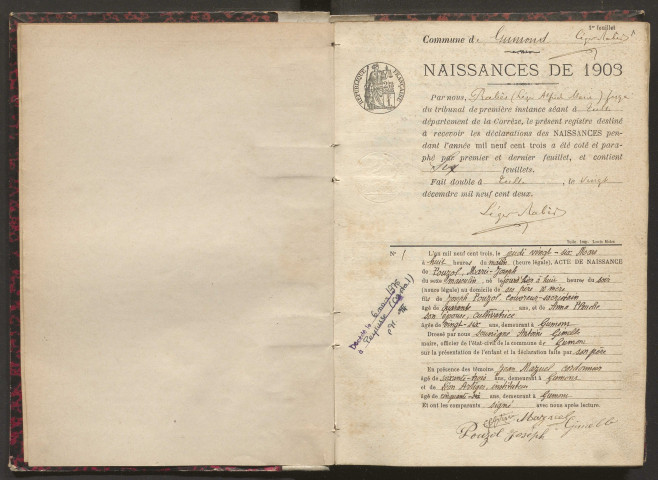 1er feuillet
Commune de Gumond Léger Rabès
NAISSANCES DE 1903
RÉPUBLIQUE FRANÇAISE
Par nous, Rabès (Léger Alfred Marie) juge
du tribunal de première instance séant à Tulle
département de la Corrèze, le présent registre destiné
à recevoir les déclarations des NAISSANCES pen-
dant l'année mil neuf cent trois a été coté et para-
phé par premier et dernier feuillet, et contient
Six feuillets.
Fait double à Tulle, le vingt
décembre mil neuf cent deux.
Léger Rabès
Tulle, Imp. Louis
N° 1
L'an mil neuf cent trois, le jeudi vingt-six Mars
à huit heures du matin (heure légale), ACTE DE NAISSANCE
de Pouzol, Marie-Joseph
du sexe masculin, né jourd'hier à huit heures du soir
(heure légale) au domicile de ses père & mère
fils de Joseph Pouzol couvreur-sacristain
âgé de quarante ans, et de Anna
son épouse, cultivatrice
âgée de vingt-six ans, demeurant à Gumon
Dressé par nous Antoine Gimelle
maire, officier de l'état-civil de la commune de Gumon
sur la présentation de l'enfant et la déclaration faite par son père
En présence des témoins Jean Mazuel cordonnier
âgé de soixante-trois ans, demeurant à Gumond
et de instituteur
âgé de cinquante-six ans, demeurant à Gumon
Et ont les comparants signé avec nous après lecture.
Mazuel
Pouzol Joseph Gimelle
Décédé le 6 mars 1976
à (Cantal)